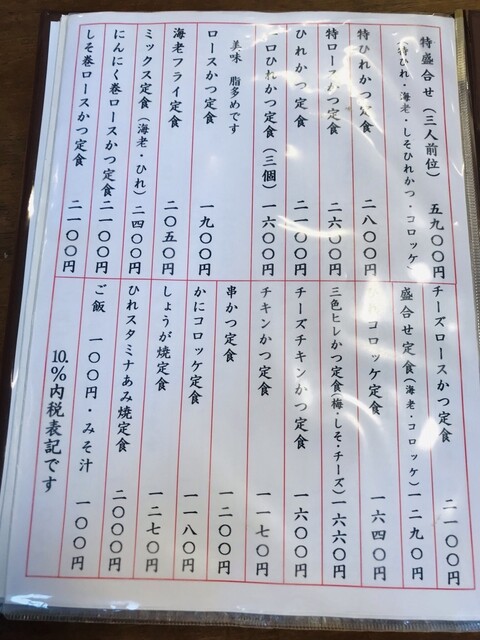 特盛合せ（三人前位）　五九〇〇円
（特ひれ・海老・しそひれかつ・コロッケ）
特ひれかつ定食　二八〇〇円
特ロースかつ定食　二六〇〇円
ひれかつ定食　二一〇〇円
一口ひれかつ定食（三個）　一六〇〇円
ロースかつ定食　一九〇〇円
美味　脂多めです
海老フライ定食　二〇五〇円
ミックス定食（海老・ひれ）二四〇〇円
にんにく巻ロースかつ定食　二一〇〇円
しそ巻ロースかつ定食　二一〇〇円
チーズロースかつ定食　二一〇〇円
盛合せ定食（海老・コロッケ）一二九〇円
コロッケ定食　一六四〇円
三色ヒレかつ定食（梅・しそ・チーズ）一六六〇円
チーズチキンかつ定食　一六〇〇円
チキンかつ定食　一一七〇円
串かつ定食　一二〇〇円
かにコロッケ定食　一一八〇円
しょうが焼定食　一二七〇円
ひれスタミナあみ焼定食　二〇〇〇円
ご飯　一〇〇円・みそ汁　一〇〇円
10.％内税表記です